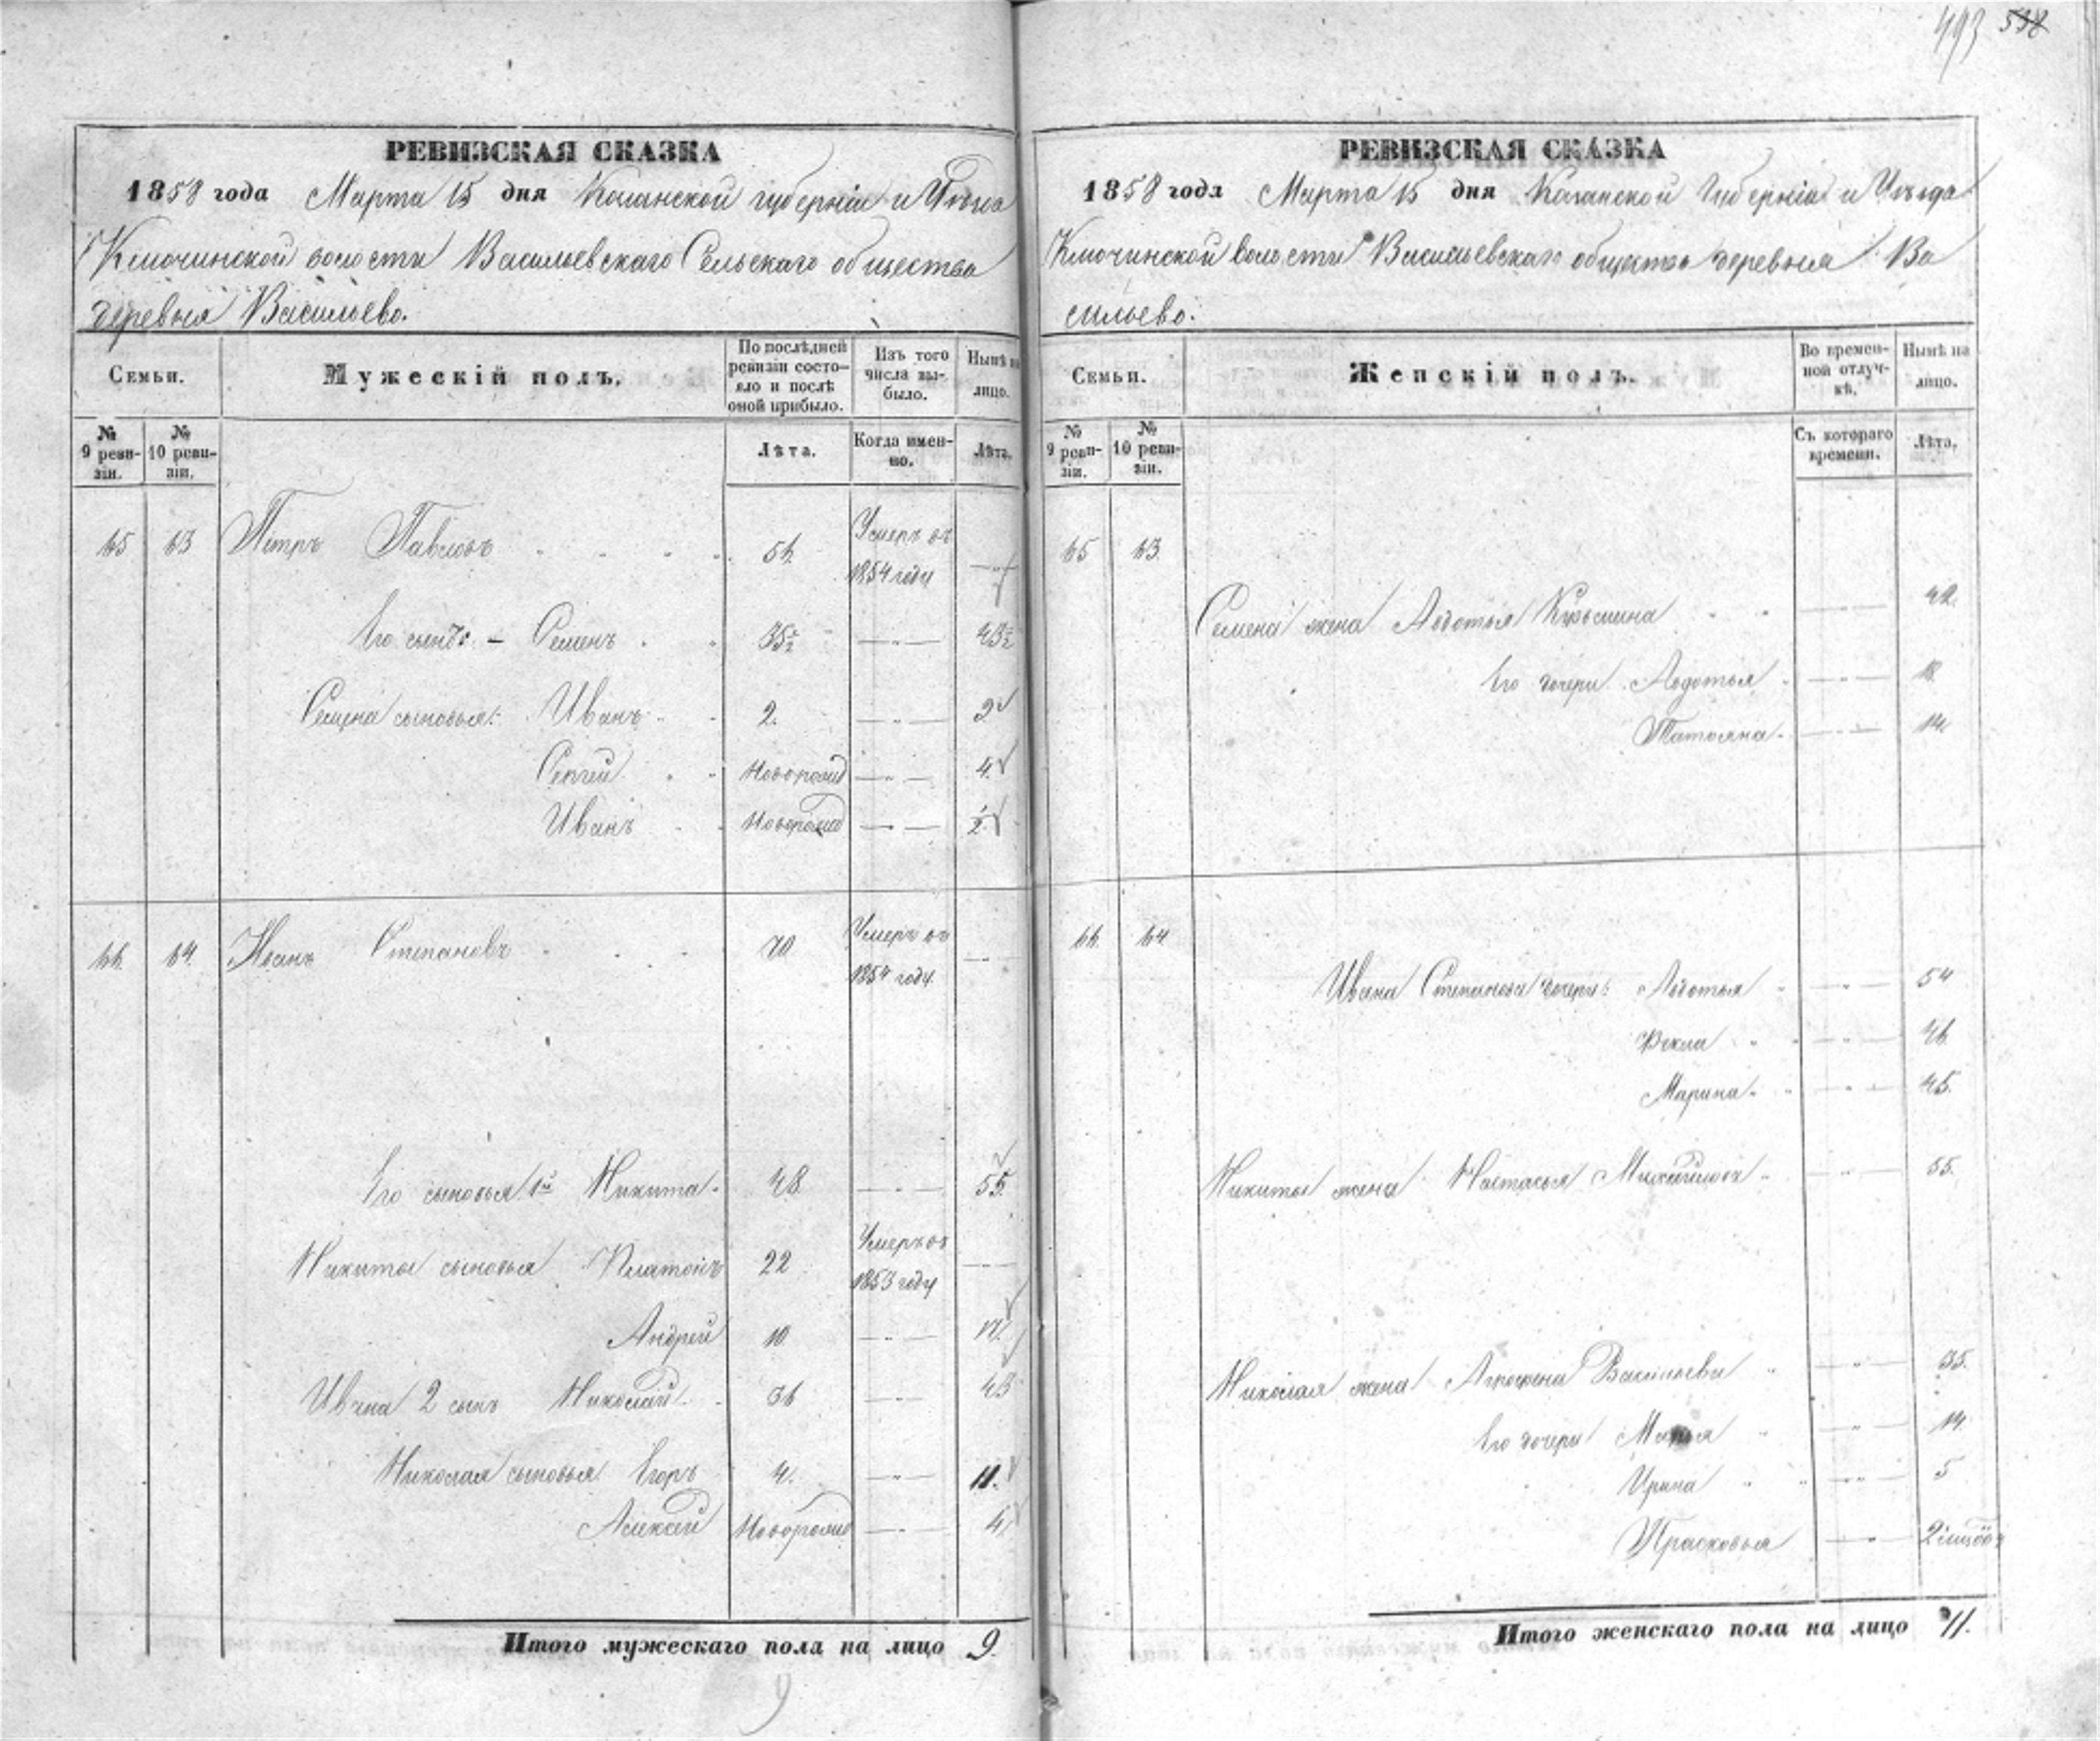 493 538
РЕВИЗСКАЯ СКАЗКА
1858 года Марта 15 дня Казанской губернiи и Уѣзда
Ключинской волости Васильевскаго Сельскаго общества
деревня Васильево.
Семьи.
Мужескiй полъ.
По послѣдней ревизiи состояло и послѣ оной прибыло.
Изъ того числа выбыло.
Нынѣ на лицо.
№ 9 ревизiи.
№ 10 ревизiи.
Лѣта.
Когда именно.
Лѣта.
65 63 Петръ Павловъ 56. Умеръ въ 1854 году
Его сынъ Семенъ 35½ 43½
Семена сыновья: Иванъ 2. 9
Сергей Новорожд 4.
Иванъ Новорожд ½
66. 64. Иванъ Степановъ 70 Умеръ въ 1854 году
Его сыновья 1й Никита 48 55.
Никиты сыновья Платонъ 22 Умеръ въ 1853 году
Андрей 10 17.
Ивана 2 сынъ Николай 36 43
Николая сыновья Егоръ 4. 11.
Алексей Новорожд 4.
Итого мужескаго пола на лицо 9.
9
РЕВИЗСКАЯ СКАЗКА
1858 года Марта 15 дня Казанской Губернiи и Уѣзда
Ключинской волости Васильевскаго общества деревня Ва
сильево.
Семьи.
Женскiй полъ.
Во временной отлучкѣ.
Нынѣ на лицо.
№ 9 ревизiи.
№ 10 ревизiи.
Съ котораго времени.
Лѣта.
65 63.
Семена жена Авдотья Кузьмина 42.
Его дочери Авдотья 18.
Татьяна 14.
66. 64
Ивана Степанова дочери: Авдотья 54
Фекла 46.
Марина 45.
Никиты жена Настасья Михайлова 55.
Николая жена Агрофена Васильева 35.
Его дочери Марья 14.
Ирина 5
Прасковья
Итого женскаго пола на лицо 11.